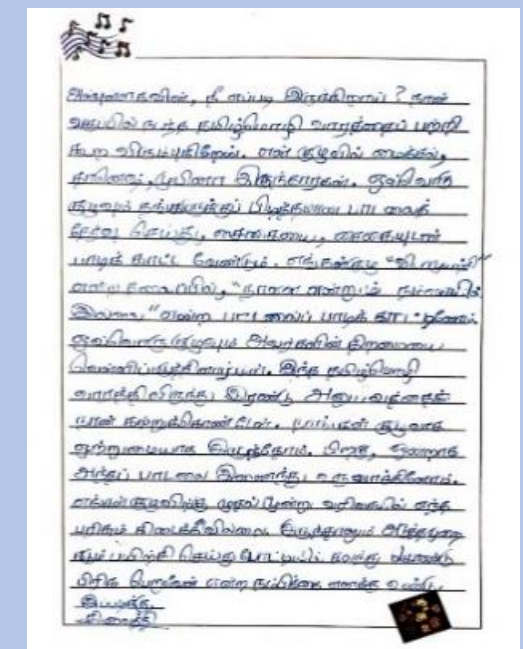 அன்புள்ள கவின், நீ எப்படி இருக்கிறாய்? நான்
நடந்த தமிழ்மொழி வாரத்தைப் பற்றி
கூற விரும்புகிறேன். என் குழுவில்
இருந்தார்கள். ஒவ்வொரு
குழுவும் தங்களுக்குப் பிடித்தமான பாடலைத்
தேர்வு செய்து, சைகையுடன்
பாடிக் காட்ட வேண்டும். எங்கள் குழு
என்ற தலைப்பில், "நாளை என்றும் நம் கையில்
இல்லை" என்ற பாடலைப் பாடிக் காட்டினோம்.
ஒவ்வொரு குழுவும் அவர்களின் திறமையை
வெளிப்படுத்தினார்கள். இந்த தமிழ்மொழி
வாரத்திலிருந்து இரண்டு
நான் கற்றுக்கொண்டேன். நாங்கள் குழுவாக
ஒற்றுமையாக இருந்தோம். பிறகு, ஒன்றாக
அந்தப் பாடலை இணைந்து உருவாக்கினோம்.
எங்கள் குழுவிற்கு முதல் மூன்று வரிசையில் எந்த
பரிசும் கிடைக்கவில்லை. இருந்தாலும் அடுத்தமுறை
பயிற்சி செய்து போட்டியில் கலந்து
பரிசு பெறுவேன் என்ற நம்பிக்கை எனக்கு உண்டு.
இப்படிக்கு,